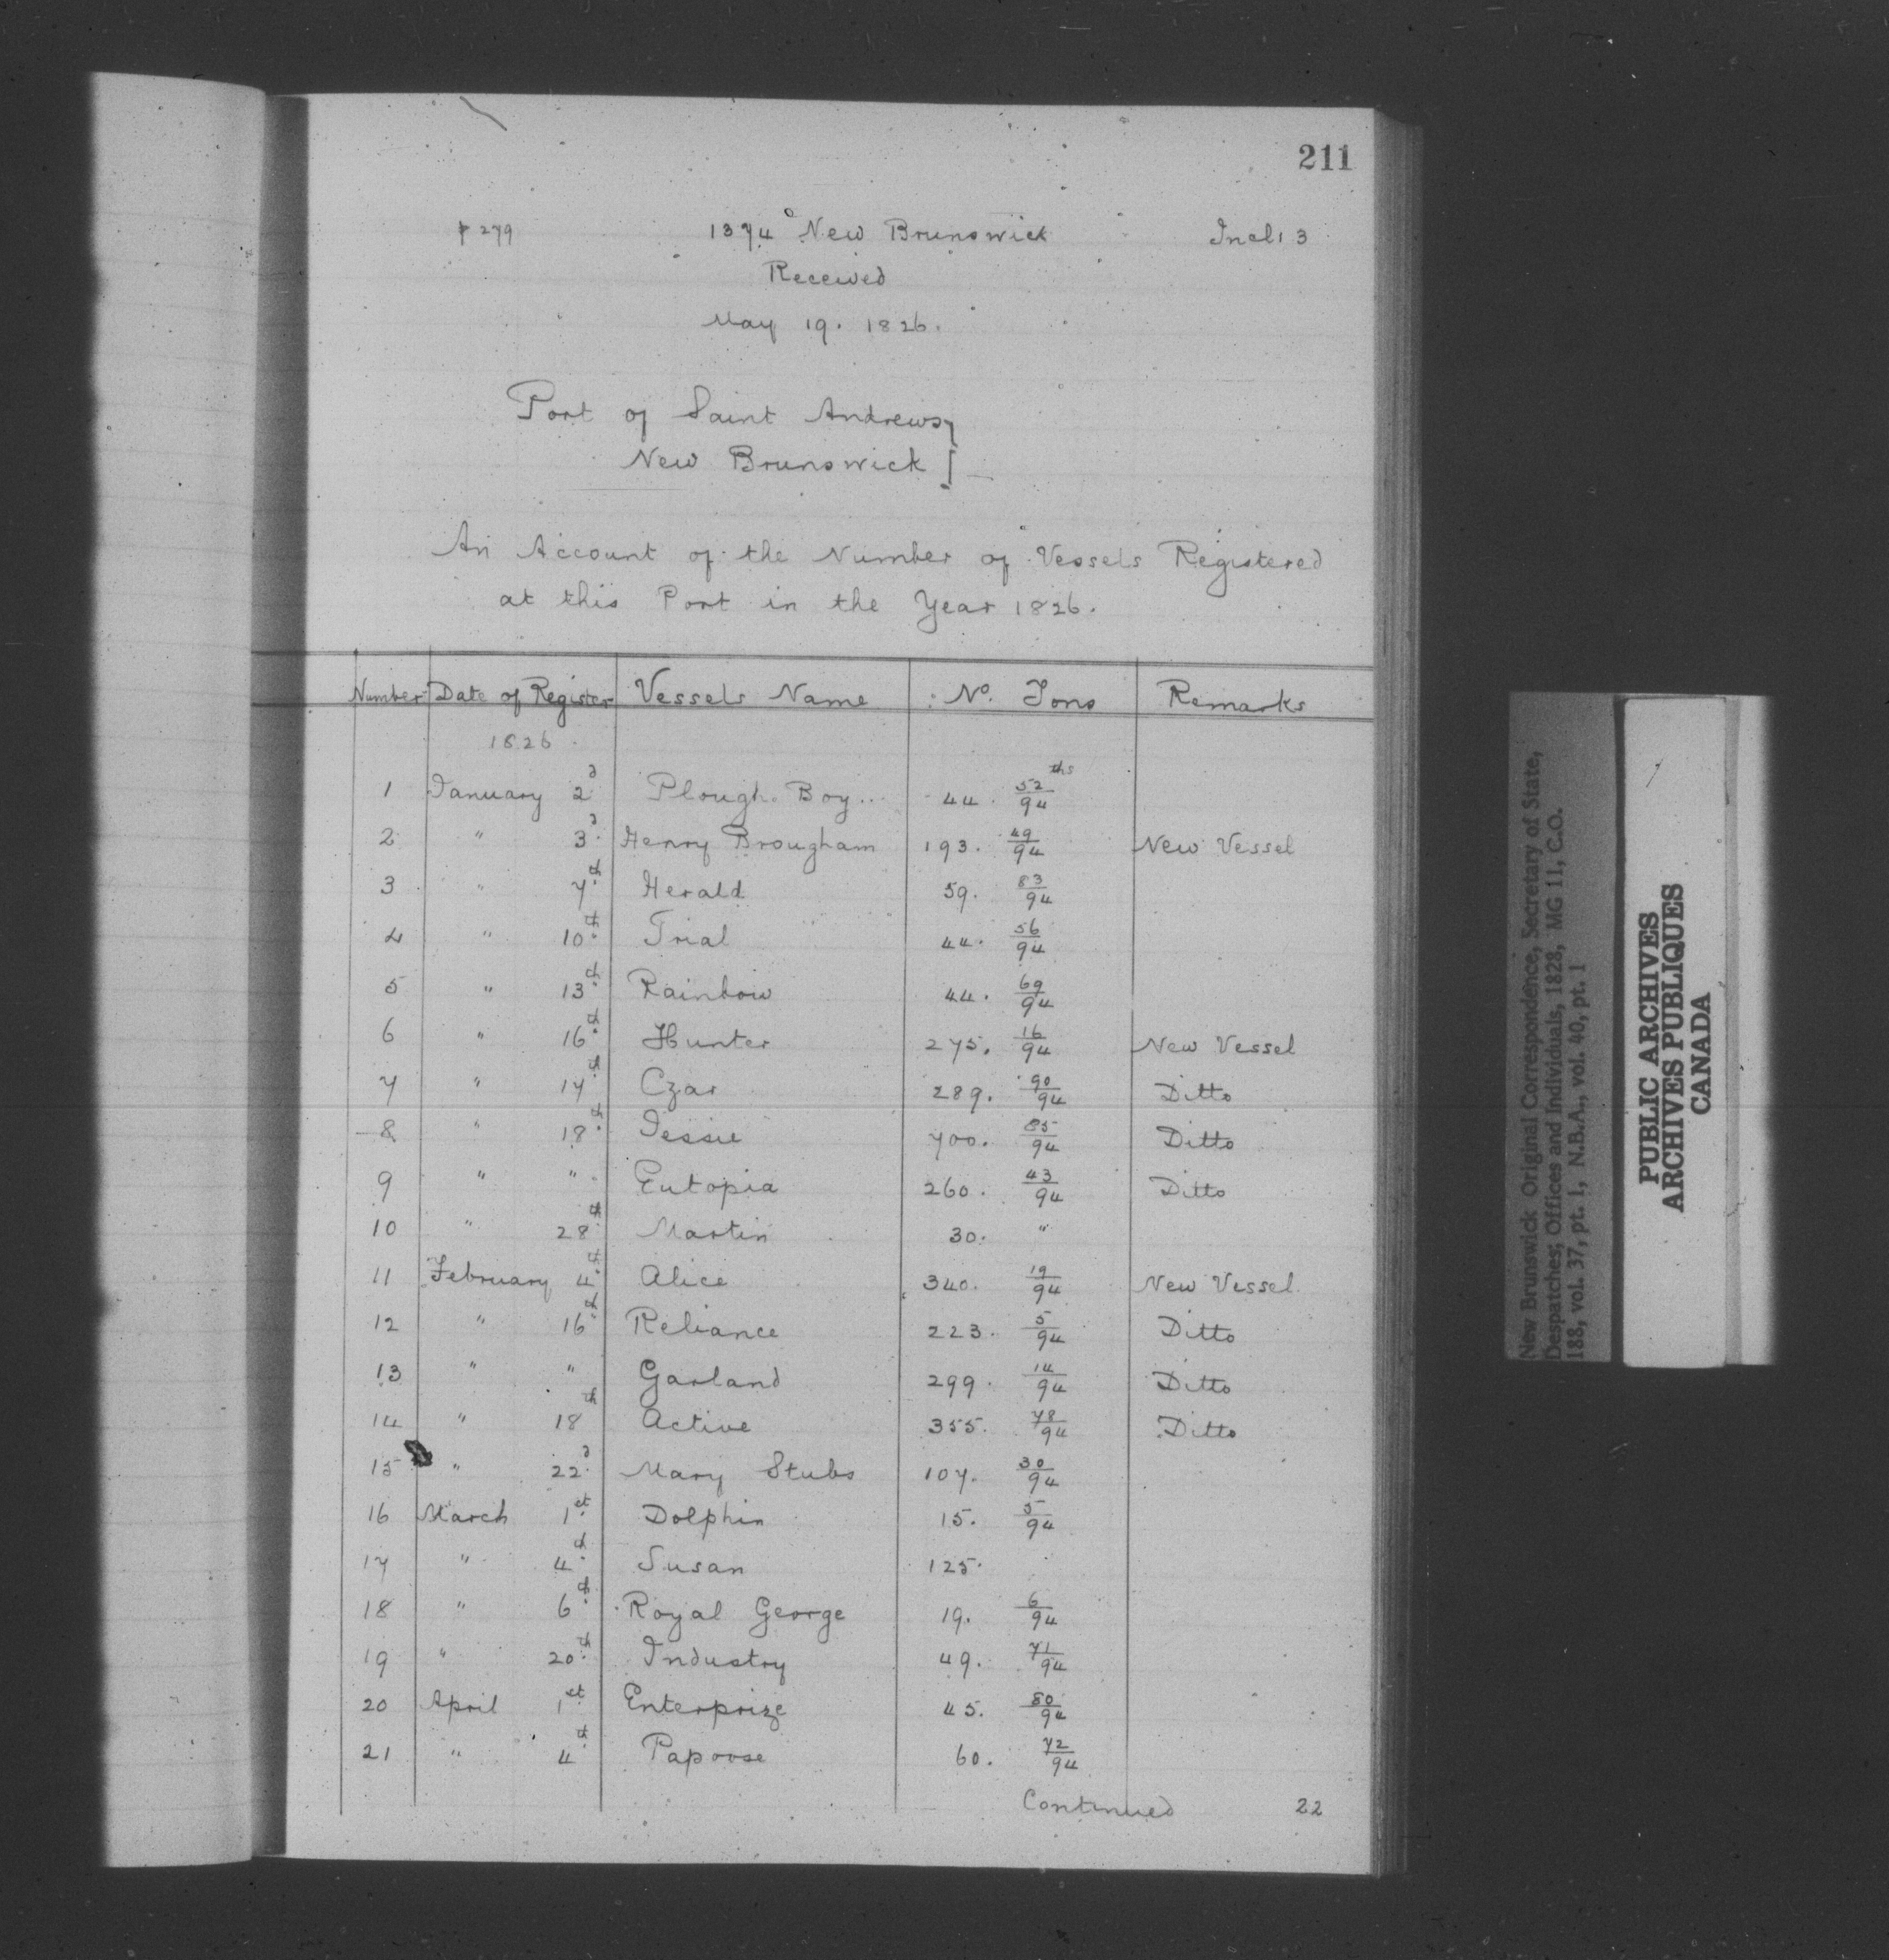 211
p 279 1374 New Brunswick Incl: 3
Received
May 19. 1826.
Port of Saint Andrews
New Brunswick
An Account of the Number of Vessels Registered
at this Port in the Year 1826.
Number Date of Register Vessels Name No. Tons Remarks
1826
1 January 2d Plough Boy... 44. 52/94 ths
2 " 3d Henry Brougham 193. 49/94 New Vessel
3 " 7th Herald 59. 83/94
4 " 10th Trial 44. 56/94
5 " 13th Rainbow 44. 69/94
6 " 16th Hunter 275. 16/94 New Vessel
7 " 17th Czar 289. 90/94 Ditto
8 " 18th Jessie 700. 85/94 Ditto
9 " " Eutopia 260. 43/94 Ditto
10 " 28th Martin 30. "
11 February 4th Alice 340. 19/94 New Vessel
12 " 16th Reliance 223. 5/94 Ditto
13 " " Garland 299. 14/94 Ditto
14 " 18th Active 355. 78/94 Ditto
15 " 22d Mary Stubs 107. 30/94
16 March 1st Dolphin 15. 5/94
17 " 4th Susan 125.
18 " 6th Royal George 19. 6/94
19 " 20th Industry 49. 71/94
20 April 1st Enterprize 45. 80/94
21 " 4th Papoose 60. 72/94
Continued 22
New Brunswick Original Correspondence, Secretary of State,
Despatches; Offices and Individuals, 1828, MG 11, C.O.
188, vol. 37, pt. 1, N.B.A., vol. 40, pt. 1
PUBLIC ARCHIVES
ARCHIVES PUBLIQUES
CANADA